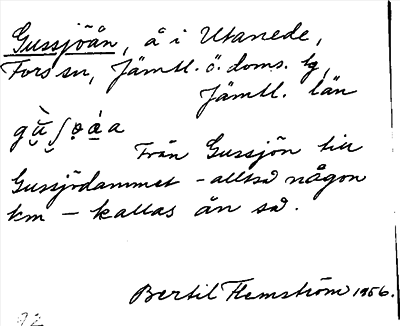 Gussjöån, å i Utanede,
Fors sn, Jämtl. ö. doms. tg,
Jämtl. län
Från Gussjön till
Gussjödammet - alltså någon
km - kallas ån så.
Bertil Flemström 1956.
92